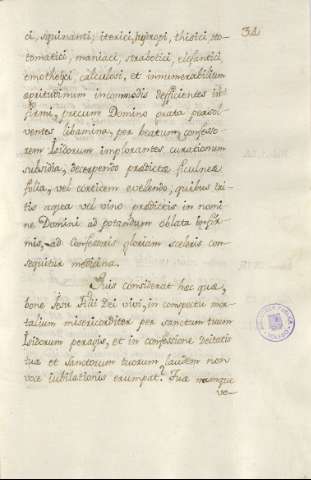 34
ci, squinanti, iterici, hydropi, thisici, sto-
tomatici, maniaci, strabotici, elefantici,
emothoyci, calculosi, et innumerabilium
egritudinum incommodis defficientes in-
firmi, precum Domino grata persol-
ventes libamina, per beatum confesso-
rem Isidorum implorantes curationum
subsidia, decerpendo predictæ ficulneæ
folia, vel corticem evelendo, quibus tri-
tis aqua vel vino predictis in nomi-
ne Domini ad potandum oblata infir-
mis, ad Confessoris gloriam sceleris con-
sequitur medicina.
Quis considerat hec quæ,
bone Jesu Fili Dei vivi, in conspectu mor-
talium misericorditer per sanctum tuum
Isidorum peragis, et in confessione deitatis
tuæ et sanctorum tuorum laudem non
voce iubilationis erumpat? Tuæ namque
ve-